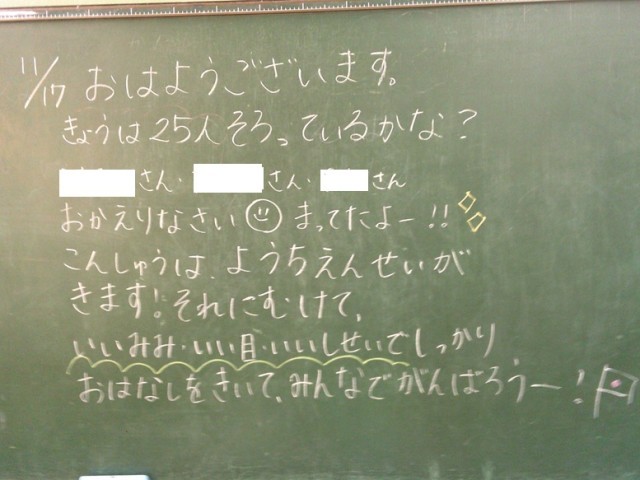 11/17 おはようございます。
きょうは25人そろっているかな?
さん・ さん・ さん
おかえりなさい まってたよー!!
こんしゅうは、ようちえんせいが
きます!それにむけて、
いいみみ・いい目・いいしせいでしっかり
おはなしをきいて、みんなでがんばろうー!